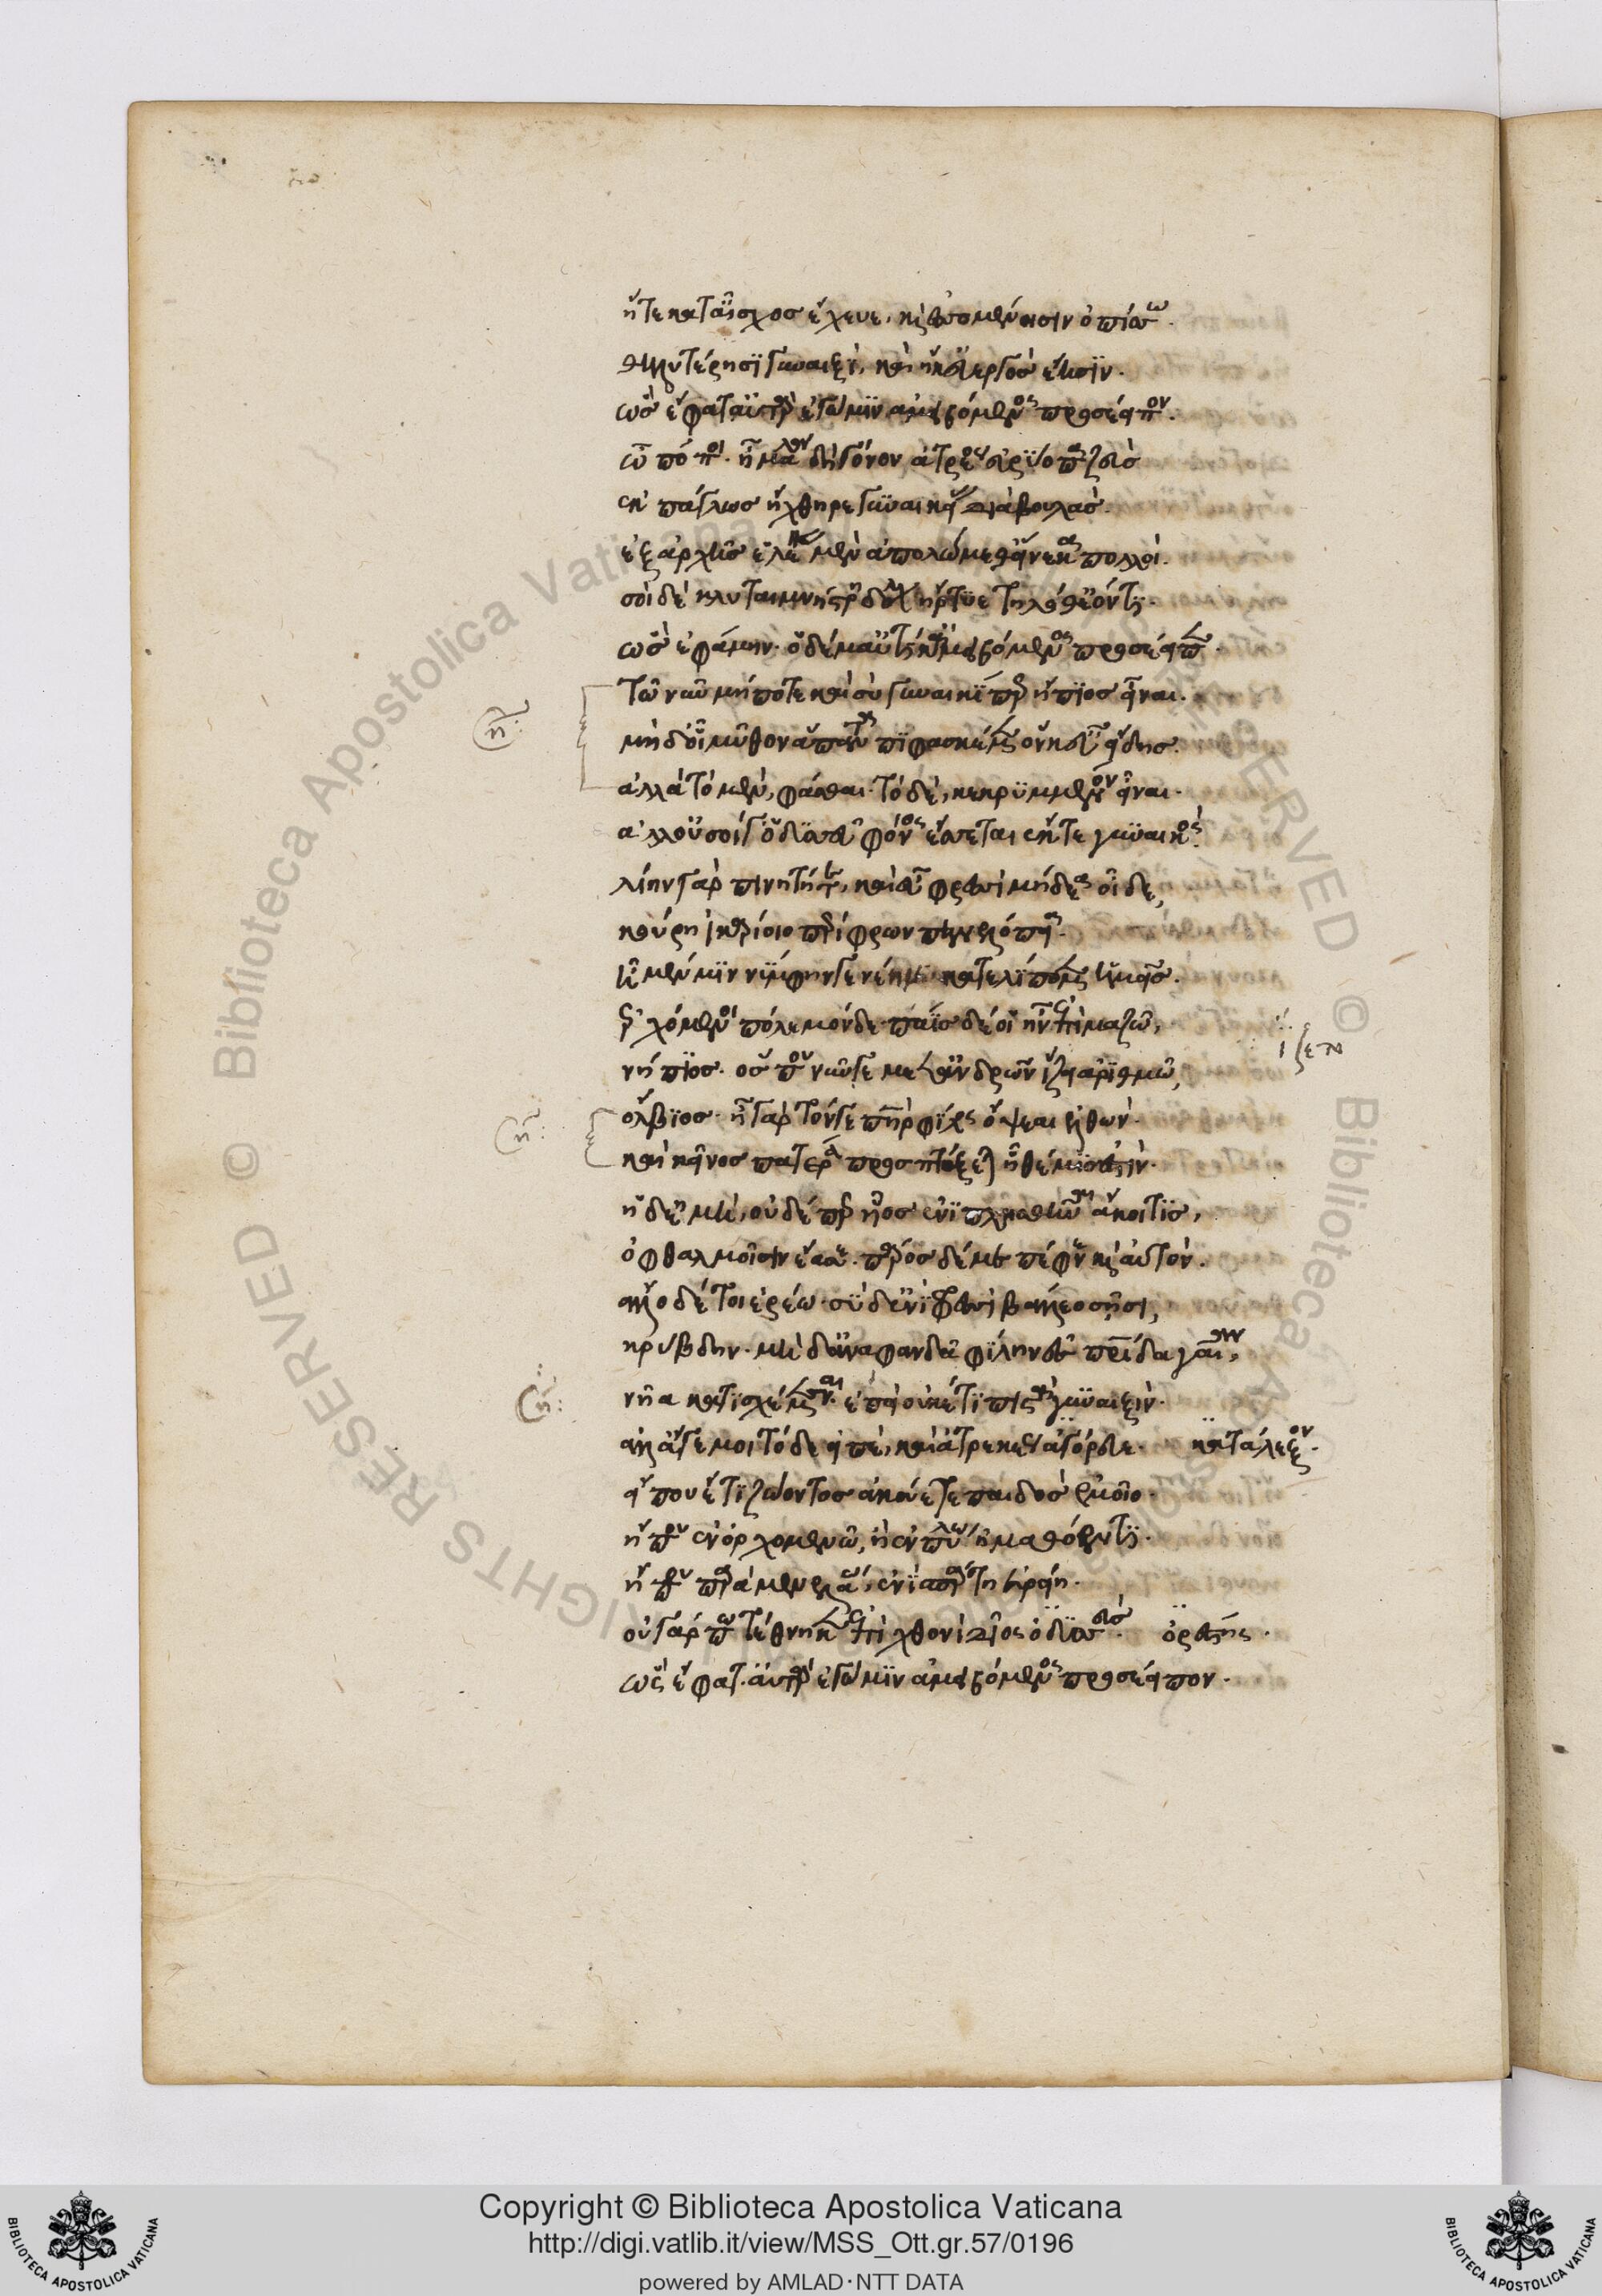 ἥ τε κατ' αἶσχος ἔχευε, καὶ ἐσσομένῃσιν ὀπίσσω.
θηλυτέρῃσϊ γυναιξϊ, καὶ ἥ κ' εὐεργὸς ἔῃσϊν.
ὣς ἔφατ' αὐτὰρ ἐγώ μϊν ἀμειβόμενος προσέειπον.
ὢ πόποι. ἦ μάλα δὴ γόνον ἀτρέος εὐρϋόπα ζεὺς
ἐκπάγλως ἤχθηρε γϋναικείας διὰ βουλάς.
ἐξ ἀρχῆς ἑλένης μὲν ἀπολώμεθ' εἵνεκα πολλοί.
σοὶ δὲ κλυταιμνήστρη δόλον ἤρτϋε τηλόθ' ἐόντϊ.
ὣς ἐφάμην. ὁ δέ μ' αὐτίκ' ἀμειβόμενος προσέειπε.
τῶ νῦν μήποτε καὶ σὺ γυναικϊ περ ἤπϊος εἶναι.
μὴ δ' οἱ μῦθον ἅπαντα πϊφασκέμεν ὅν κ' εὖ εἰδῇς.
ἀλλὰ τὸ μὲν, φάσθαι. τὸ δὲ, κεκρϋμμένον εἶναι.
ἀλλ' οὐ σοί γ' ὀδϋσεῦ φόνος ἔσσεται ἔκ τε γϋναικός.
λίην γὰρ πινητή τε, καὶ εὖ φρεσὶ μήδεα οἶδε,
κούρη ἰκαρίοιο περίφρων πηνελόπεια.
ἦ μέν μϊν νϋμφην γε νέην κατελϊπομεν ἡμεῖς.
ἐρχόμενοι πόλεμόνδε. παῖς δέ οἱ ἦν ἐπὶ μαζῶ,
νήπϊος. ὅς που νῦν γε μετ' ἀνδρῶν ἵζει ἀρϊθμῶ,
ὄλβϊος. ἦ γὰρ τόν γε πατὴρ φίλος ὄψεαι ἐλθών.
καὶ κεῖνος πατέρα προσπτύξεται ἣ θέμϊς ἐστίν.
ἡ δ' ἐμὴ, οὐδέ περ υἷος ἐνϊπλησθῆναι ἄκοιτϊς,
ὀφθαλμοῖσιν ἔασε. πάρος δέ με πέφνε καὶ αὐτόν.
ἄλλο δέ τοι ἐρέω. σϋ δ' ἐνὶ φρεσὶ βάλλεο σῇσι,
κρύβδην. μὴ δ' ἀναφανδὰ φϊλην ἐς πατρίδα γαῖαν,
νῆα κατϊσχέμεναι. ἐπεὶ οὐκέτϊ πιστὰ γϋναιξίν.
ἀλλ' ἄγε μοι τόδε εἰπὲ, καὶ ἀτρεκέως ἀγόρευε. κατάλεξον.
εἴ που ἔτϊ ζώοντος ἀκούετε παιδὸς ἐμοῖο.
ἤ που ἐν ὀρχομενῶ, ἢ ἐν πύλω ἠμαθόεντϊ.
ἤ που παρὰ μενελάω, ἐνϊ σπάρτη εὐρείη.
οὐ γάρ πω τέθνηκεν ἐπὶ χθονὶ δῖος ὀδϋσσεύς. ὀρέστης.
ὣς ἔφατ. αὐτὰρ ἐγώ μϊν ἀμειβόμενος προσέειπον.
Copyright © Biblioteca Apostolica Vaticana
http://digi.vatlib.it/view/MSS_Ott.gr.57/0196
powered by AMLAD·NTT DATA